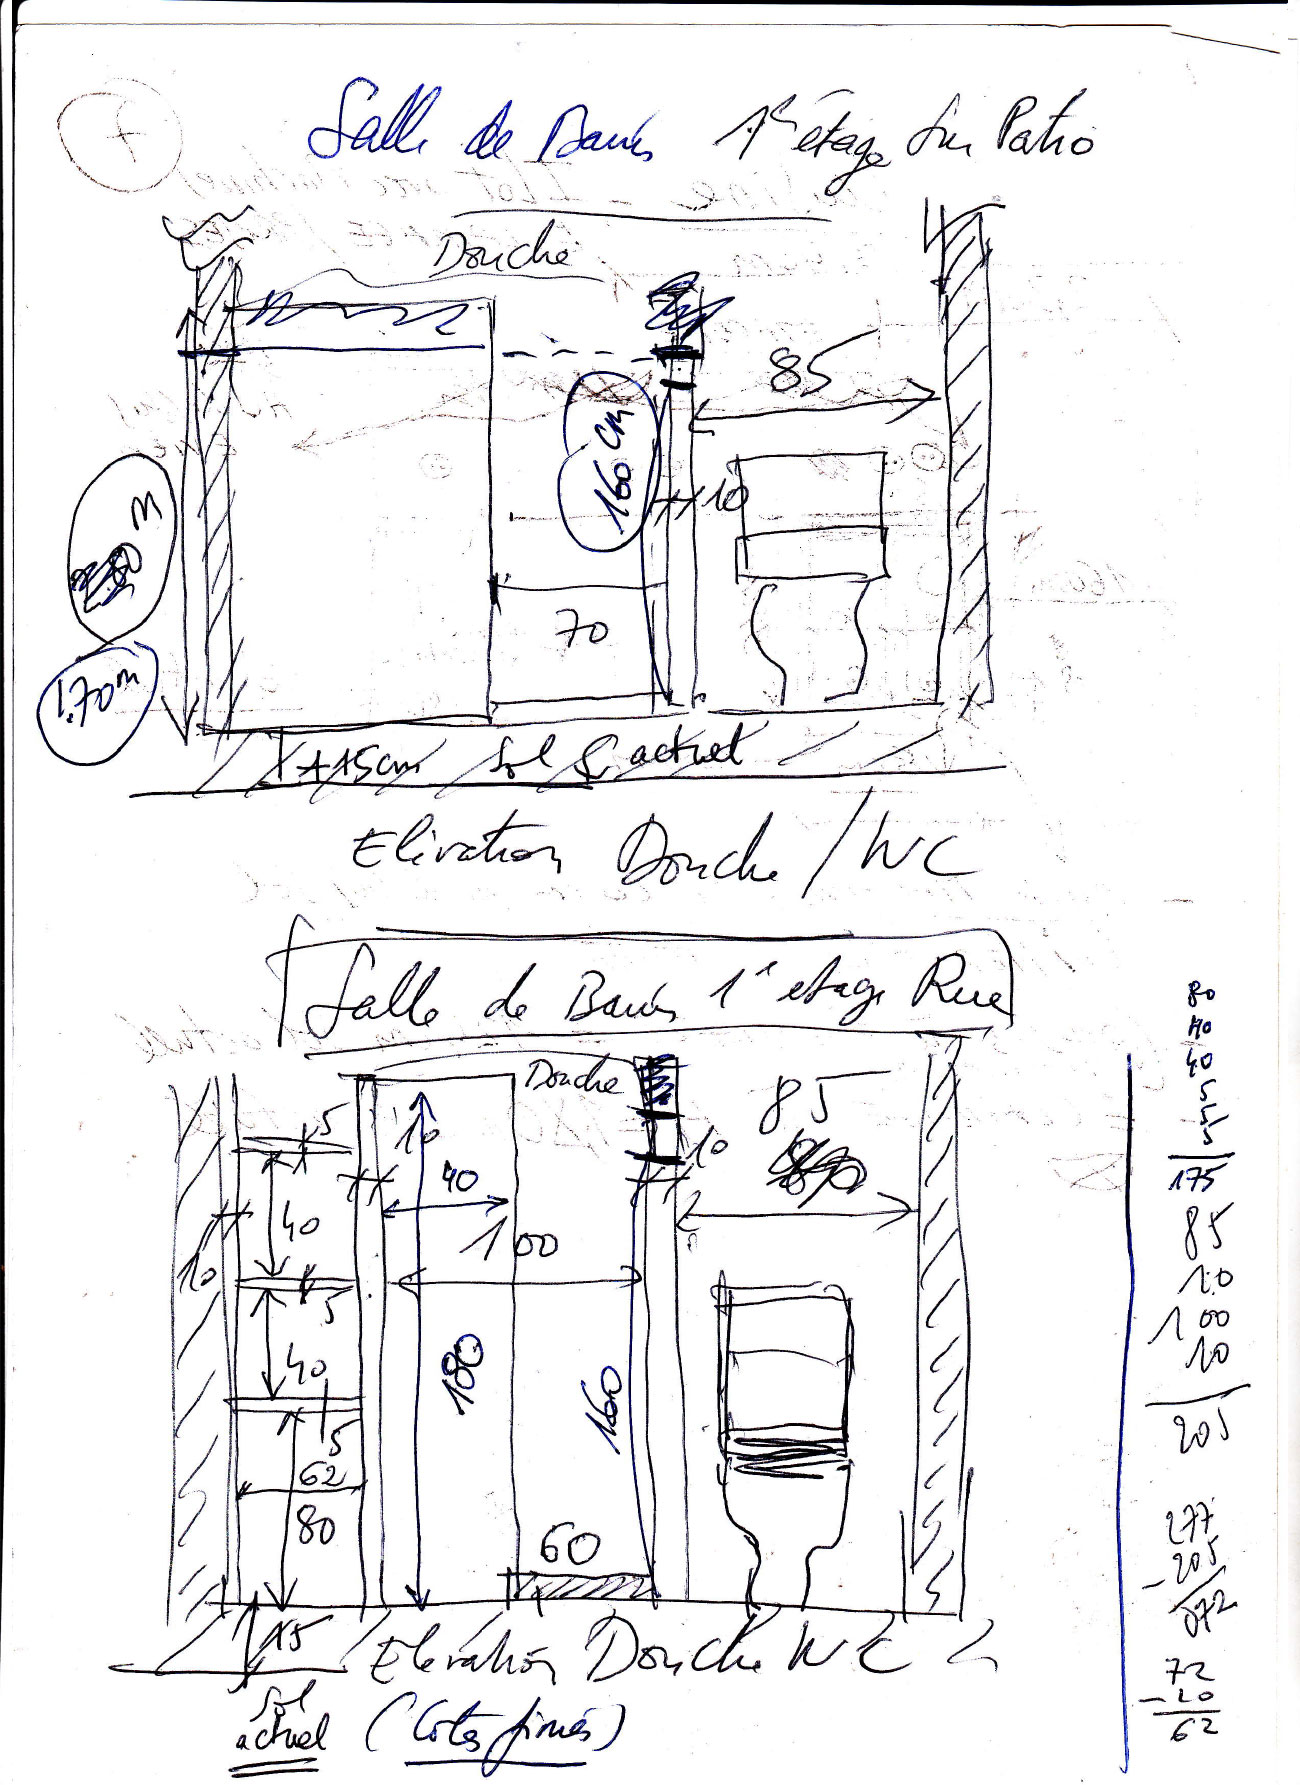 7
Salle de Bains 1er étage sur Patio
Douche
85
160 cm
10
M
70
1.70m
+15cm Sol actuel
Elévation Douche / WC
Salle de Bains 1er etage Rue
Douche
85
5
10
10
40
40
100
10
5
40
180
160
5
62
80
60
15
Elévation Douche WC
Sol
actuel
(Cotes finies)
80
40
40
5
5
5
175
85
10
100
10
205
277
- 205
072
72
- 10
62